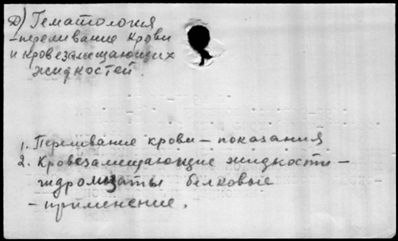 D) Гематология
- переливание крови
и кровезамещающих
жидкостей.
1. Переливание крови - показания
2. Кровезамещающие жидкости -
гидролизаты белковые
- применение.